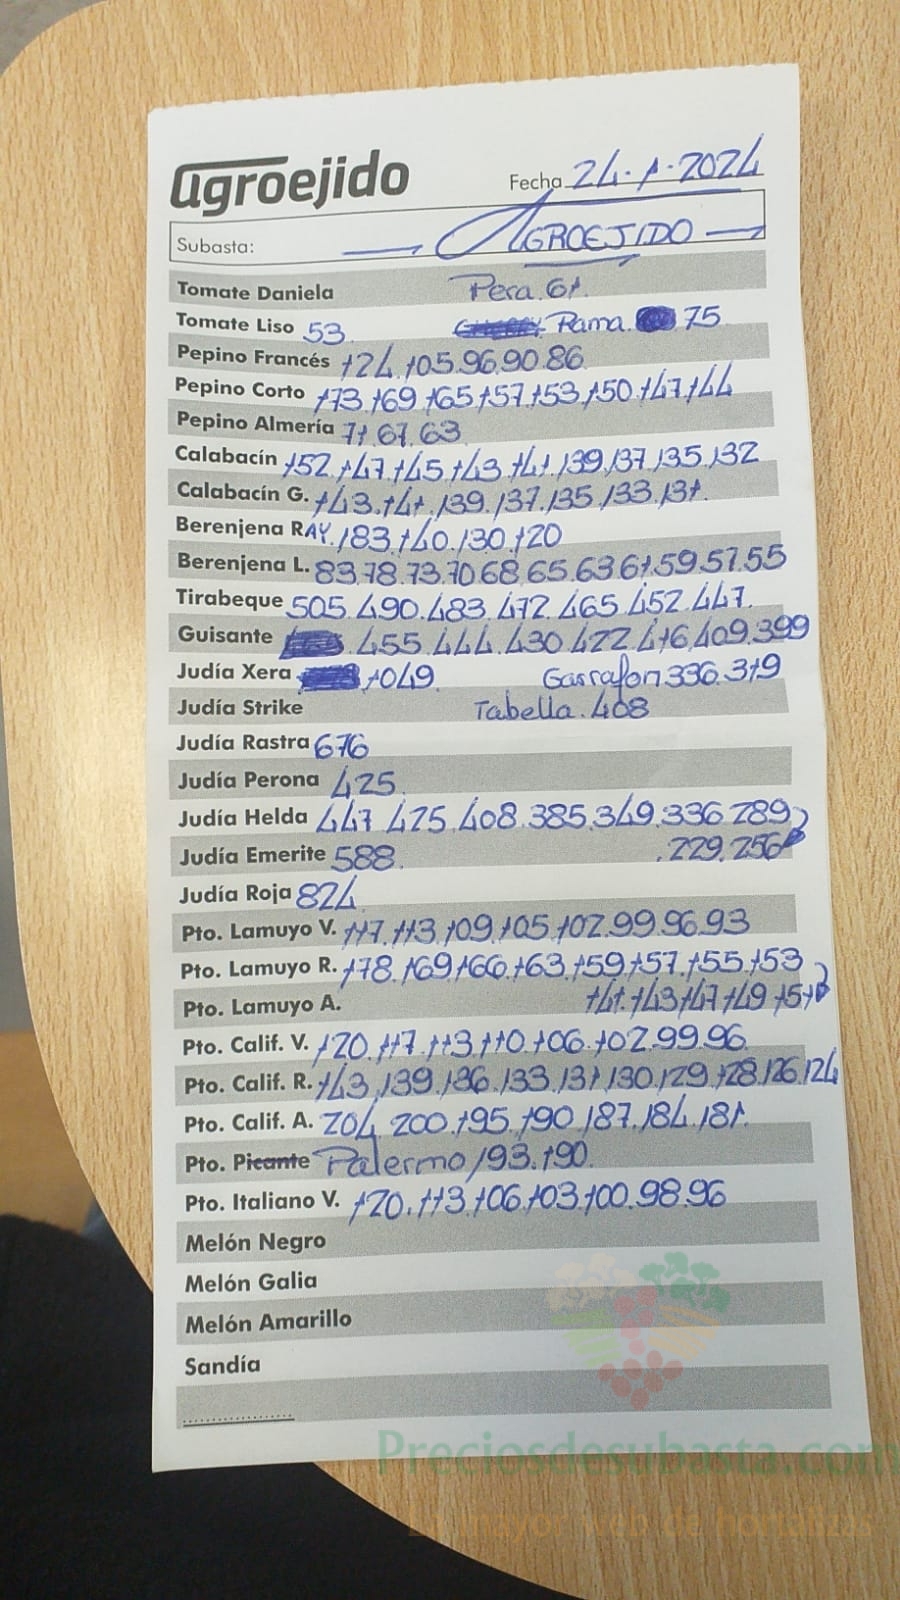 agroejido
Fecha 24.1.2024
Subasta: AGROEJIDO
Tomate Daniela Pera.61.
Tomate Liso 53 Rama. 75
Pepino Francés 124.105.96.90.86
Pepino Corto 173.169.165.157.153.150.147.144
Pepino Almería 71.67.63
Calabacín 152.147.145.143.141.139.137.135.132
Calabacín G. 143.141.139.137.135.133.131.
Berenjena RAY. 183.140.130.120
Berenjena L. 83.78.73.70.68.65.63.61.59.57.55
Tirabeque 505.490.483.472.465.452.447.
Guisante 455.444.430.422.416.409.399
Judía Xera 1049 Garrafon 336.319
Judía Strike Tabella.408
Judía Rastra 676
Judía Perona 425.
Judía Helda 447.425.408.385.349.336.289
Judía Emerite 588. .229.256
Judía Roja 824
Pto. Lamuyo V. 117.113.109.105.102.99.96.93
Pto. Lamuyo R. 178.169.166.163.159.157.155.153
Pto. Lamuyo A. 141.143.147.149.151
Pto. Calif. V. 120.117.113.110.106.102.99.96.
Pto. Calif. R. 143.139.136.133.131.130.129.128.126.124
Pto. Calif. A. 204.200.195.190.187.184.181.
Pto. Picante Palermo 193.190.
Pto. Italiano V. 120.113.106.103.100.98.96
Melón Negro
Melón Galia
Melón Amarillo
Sandía
Preciosdesubasta.com
La mayor web de hortalizas